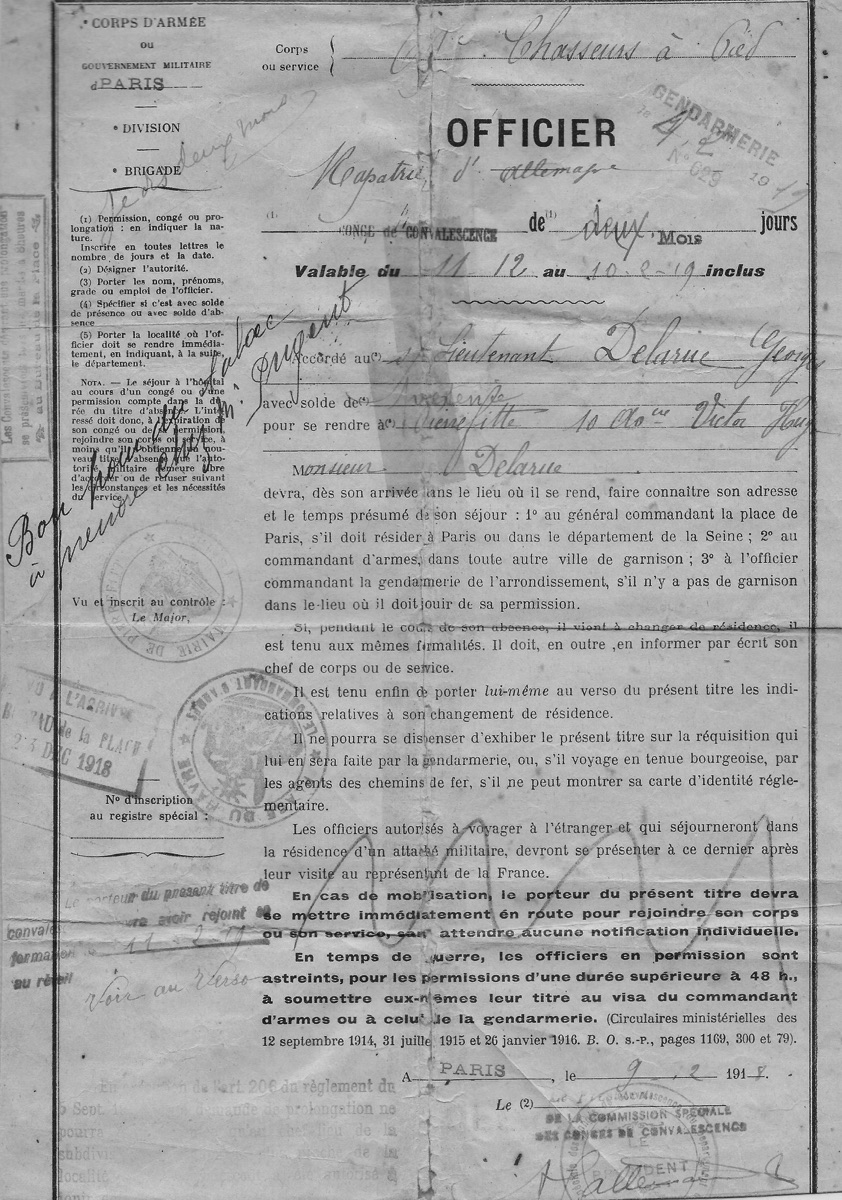 * CORPS D'ARMÉE
OU
GOUVERNEMENT MILITAIRE
d PARIS
* DIVISION
* BRIGADE
(1) Permission, congé ou pro-
longation : en indiquer la na-
ture.
Inscrire en toutes lettres le
nombre de jours et la date.
(2) Désigner l'autorité.
(3) Porter les nom, prénoms,
grade ou emploi de l'officier.
(4) Spécifier si c'est avec solde
de présence ou avec solde d'ab-
sence
(5) Porter la localité où l'of-
ficier doit se rendre immédia-
tement, en indiquant, à la suite,
le département.
NOTA. — Le séjour à l'hôpital
au cours d'un congé ou d'une
permission compte dans la du-
rée du titre d'absence. L'inté-
ressé doit donc, à l'expiration de
son congé ou de sa permission,
rejoindre son corps ou service, à
moins qu'il n'obtienne un nou-
veau titre d'absence que l'auto-
rité militaire demeure libre
d'accorder ou de refuser suivant
les circonstances et les nécessités
du service.
Bon pour du tabac
à prendre chez Mr
Vu et inscrit au contrôle :
Le Major,
VU A L'ARRIVÉE
BUREAU de la PLACE
DEC 1918
N° d'inscription
au registre spécial :
Le porteur du présent titre de
11 - 2 - 19
au réveil
Voir au Verso
Corps
ou service
Chasseurs à Pied
GENDARMERIE
N° 629
OFFICIER
Rapatrié d'Allemagne
(1) CONGE de CONVALESCENCE de (1) deux Mois jours
Valable du 11 12 au 10-2-19 inclus
Accordé au (3) Lieutenant Delarue Georges
avec solde de (4) présence
pour se rendre à (5) Pierrefitte 10 Victor Hugo
Monsieur Delarue
devra, dès son arrivée dans le lieu où il se rend, faire connaître son adresse
et le temps présumé de son séjour : 1° au général commandant la place de
Paris, s'il doit résider à Paris ou dans le département de la Seine ; 2° au
commandant d'armes, dans toute autre ville de garnison ; 3° à l'officier
commandant la gendarmerie de l'arrondissement, s'il n'y a pas de garnison
dans le lieu où il doit jouir de sa permission.
Si, pendant le cours de son absence, il vient à changer de résidence, il
est tenu aux mêmes formalités. Il doit, en outre ,en informer par écrit son
chef de corps ou de service.
Il est tenu enfin de porter lui-même au verso du présent titre les indi-
cations relatives à son changement de résidence.
Il ne pourra se dispenser d'exhiber le présent titre sur la réquisition qui
lui en sera faite par la gendarmerie, ou, s'il voyage en tenue bourgeoise, par
les agents des chemins de fer, s'il ne peut montrer sa carte d'identité régle-
mentaire.
Les officiers autorisés à voyager à l'étranger et qui séjourneront dans
la résidence d'un attaché militaire, devront se présenter à ce dernier après
leur visite au représentant de la France.
En cas de mobilisation, le porteur du présent titre devra
se mettre immédiatement en route pour rejoindre son corps
ou son service, sans attendre aucune notification individuelle.
En temps de guerre, les officiers en permission sont
astreints, pour les permissions d'une durée supérieure à 48 h.,
à soumettre eux-mêmes leur titre au visa du commandant
d'armes ou à celui de la gendarmerie. (Circulaires ministérielles des
12 septembre 1914, 31 juillet 1915 et 26 janvier 1916. B. O. s.-P., pages 1169, 300 et 79).
A PARIS, le 9 . 2 1918.
Le (2)
DE LA COMMISSION SPÉCIALE
DES CONGES DE CONVALESCENCE